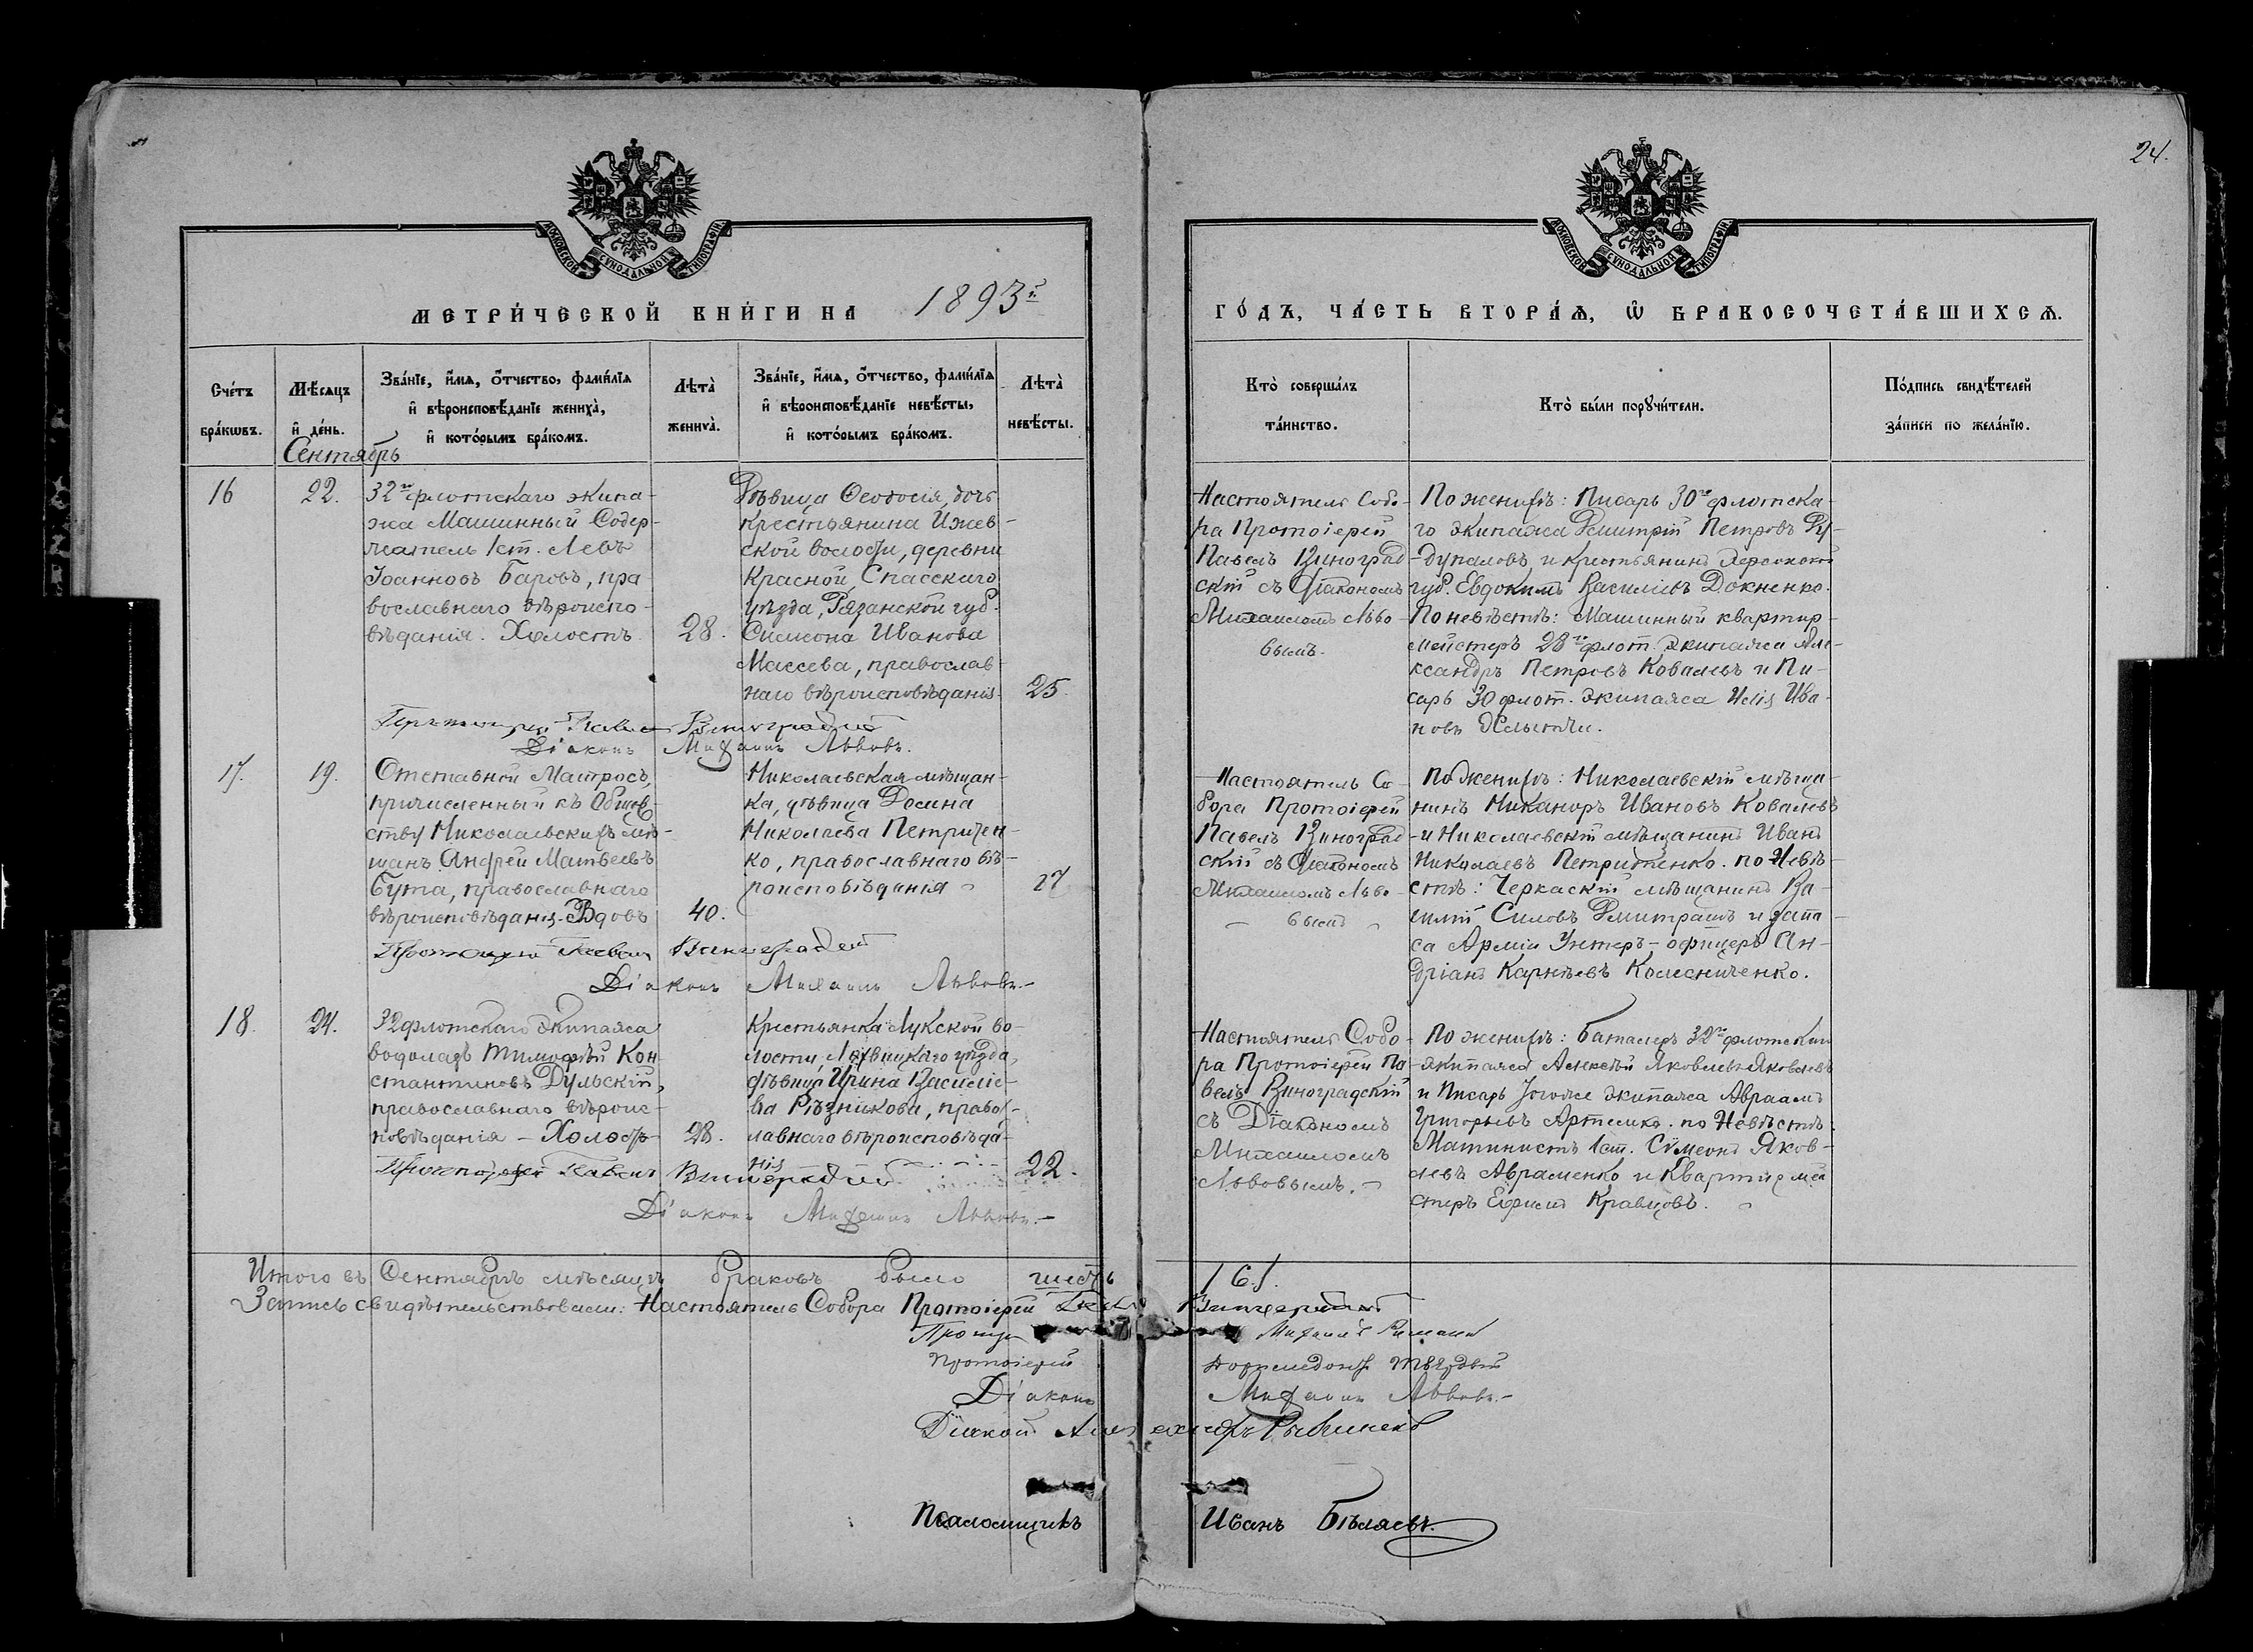 24.
МОСКОВСКОЙ СѴНОДАЛЬНОЙ ТИПОГРАФІИ
МОСКОВСКОЙ СѴНОДАЛЬНОЙ ТИПОГРАФІИ
МЕТРИ́ЧЕСКОЙ КНИ́ГИ НА 1893й
ГО́ДЪ, ЧА́СТЬ ВТОРА́Ѧ, Ѡ БРАКОСОЧЕТА́ВШИХСѦ.
Сче́тъ
бра́кѡвъ.
Мѣ́сяцъ
и де́нь.
Зва́нїе, и́мѧ, о́тчество, фами́лїѧ
и вѣроисповѣ́данїе жениха̀,
и кото́рымъ бра́комъ.
Лѣта̀
жениха̀.
Зва́нїе, и́мѧ, о́тчество, фами́лїѧ
и вѣроисповѣ́данїе невѣ́сты,
и кото́рымъ бра́комъ.
Лѣта̀
невѣ́сты.
Кто̀ соверша́лъ
та́инство.
Кто̀ бы́ли порꙋчи́тели.
По́дпись свидѣ́телей
за́писи по жела́нїю.
Сентябрь
16
22.
32го флотскаго экипа-
жа Машинный Содер-
жатель 1 ст. Левъ
Іоанновъ Баровъ, пра-
вославнаго вѣроиспо-
вѣданія. Холостъ
28.
Дѣвица Ѳеодосія, дочь
крестьянина Ижев-
ской волости, деревни
Красной Спасскаго
уѣзда, Рязанской губ.
Симеона Иванова
Массева, православ-
наго вѣроисповѣданія.
25.
Настоятель Собо-
ра Протоіерей
Павелъ Виноград
скій съ Діакономъ
Михаиломъ Льво-
вымъ.
По женихѣ: Писарь 30го флотска-
го экипажа Дмитрій Петровъ
и крестьянинъ Херсонской
губ. Евдокимъ Василіевъ Докненко.
По невѣстѣ: Машинный квартир-
мейстеръ 28го флот. Экипажа Але-
ксандръ Петровъ Ковалевъ и Пи-
сарь 30 флот. экипажа Илія Ива-
новъ
Протоіерей Павелъ Виноградскій
Діаконъ Михаилъ Львовъ.
17.
19.
Отставной Матросъ,
причисленный къ Общес-
тву Николаевскихъ мѣ-
щанъ Андрей Матвеевъ
Бута, православнаго
вѣроисповѣданія. Вдовъ
40.
Николаевская мѣщан-
ка, дѣвица Досина
Николаева Петричен-
ко, православнаго вѣ-
роисповѣданія
27
Настоятель Со-
бора Протоіерей
Павелъ Виноград
скій съ Діакономъ
Михаиломъ Льво-
вымъ
По женихѣ: Николаевскій мѣща-
нинъ Никаноръ Ивановъ Ковалевъ
и Николаевскій мѣщанинъ Иванъ
Николаевъ Петриченко. по Невѣ-
стѣ: Черкаскій мѣщанинъ Ва-
силій Силовъ Дмитрашъ и запа-
са Арміи Унтеръ-офицеръ Ан-
дріанъ Карнѣевъ Колесниченко.
Протоіерей Павелъ Виноградскій
Діаконъ Михаилъ Львовъ.
18.
24.
32 флотскаго Экипажа
водолазъ Тимофѣй Кон-
стантиновъ Дульскій,
православнаго вѣроис-
повѣданія – Холостъ
28.
Крестьянка Лукской во-
лости, Лохвицкаго уѣзда,
дѣвица Ирина Василіе-
ва Рѣзникова, правос-
лавнаго вѣроисповѣда-
нія
22.
Настоятель Собо-
ра Протоіерей Па-
велъ Виноградскій
съ Діакономъ
Михаиломъ
Львовымъ.
По женихѣ: Баталеръ 32го флотскаго
экипажа Алексѣй Яковлевъ Яковлевъ
и Писарь Тогоже экипажа Авраамъ
Григорьевъ Артемко. по Невѣстѣ:
Машинистъ 1 ст. Сѵмеонъ Яков-
левъ Авраменко и Квартирмей
стеръ Ефимъ Кравцовъ.
Протоіерей Павелъ Виноградскій
Діаконъ Михаилъ Львовъ.
Итого въ Сентябрѣ мѣсяцѣ браковъ было шесть /6./.
Запись свидѣтельствовали: Настоятель Собора Протоіерей Павелъ Виноградскій
Михаилъ
Протоіерей
Діаконъ Михаилъ Львовъ.
Діаконъ Александръ
Псаломщикъ Иванъ Бѣляевъ.